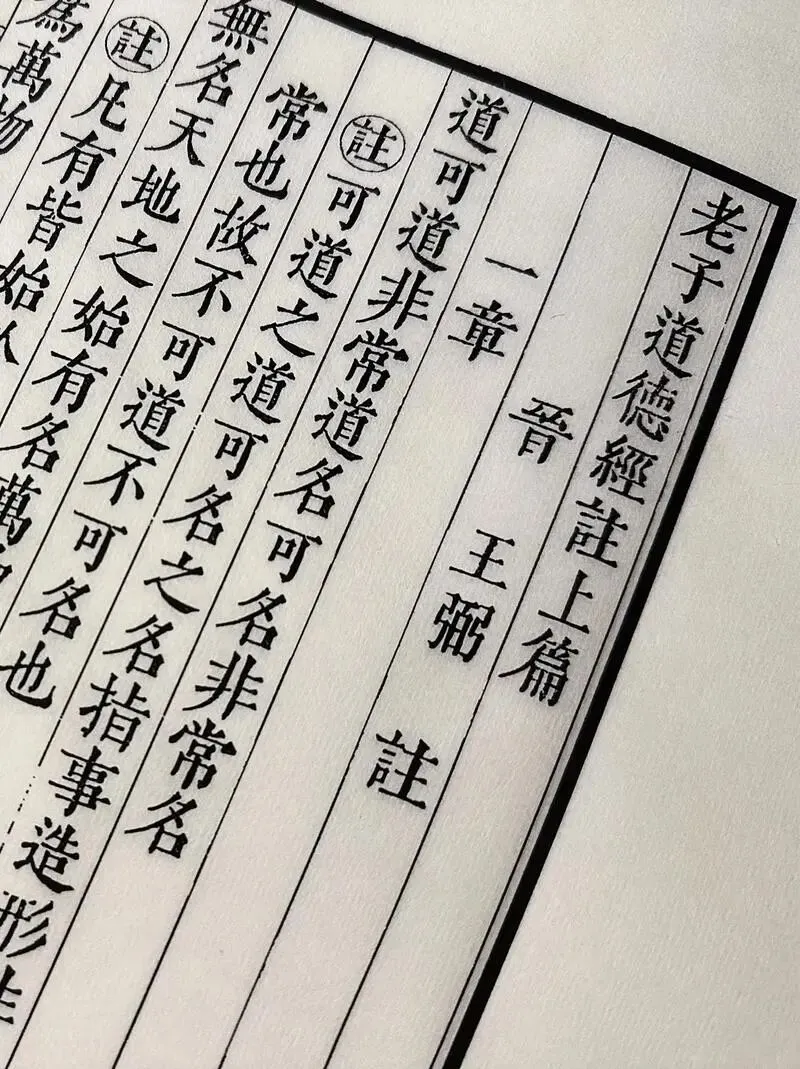 老子道德經註上篇
晉 王弼 註
一章
道可道非常道名可名非常名
註可道之道可名之名指事造形
常也故不可道不可名也
無名天地之始有名萬
註凡有皆始
為萬物